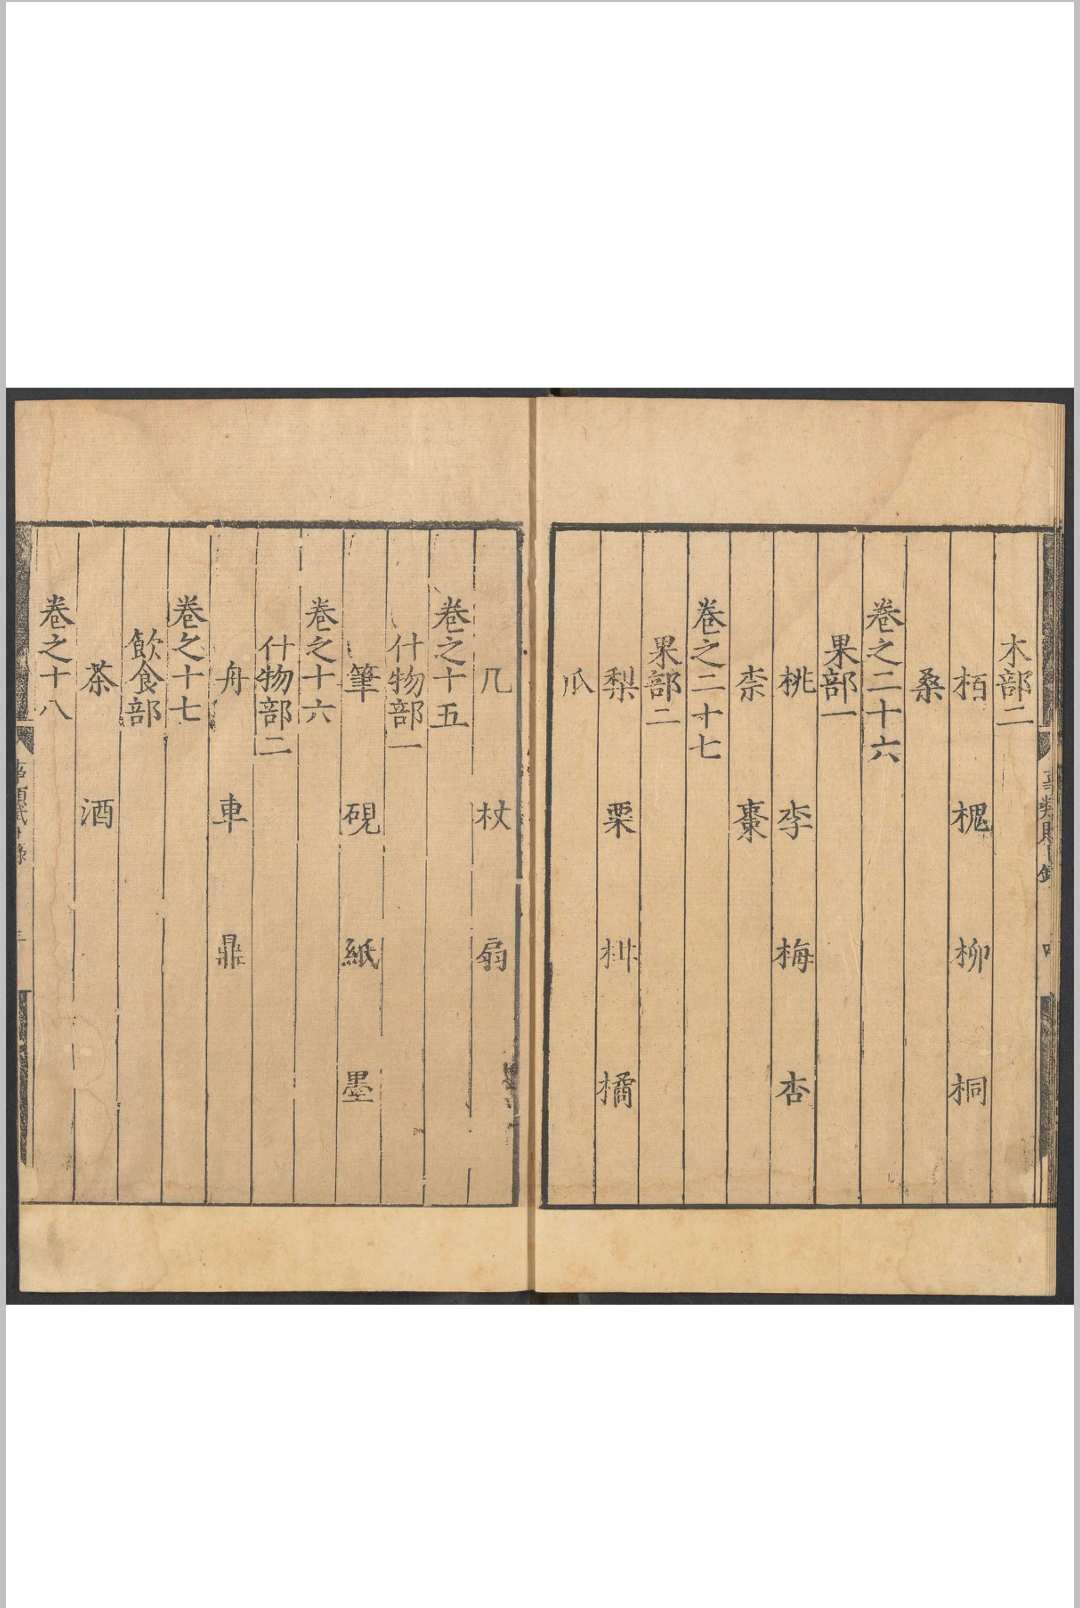 木部二
栢 槐 柳 桐
桑
卷之二十六
果部一
桃 李 梅 杏
柰 棗
卷之二十七
果部二
梨 栗 柑 橘
瓜
几 杖 扇
卷之十五
什物部一
筆 硯 紙 墨
卷之十六
什物部二
舟 車 鼎
卷之十七
飲食部
茶 酒
卷之十八